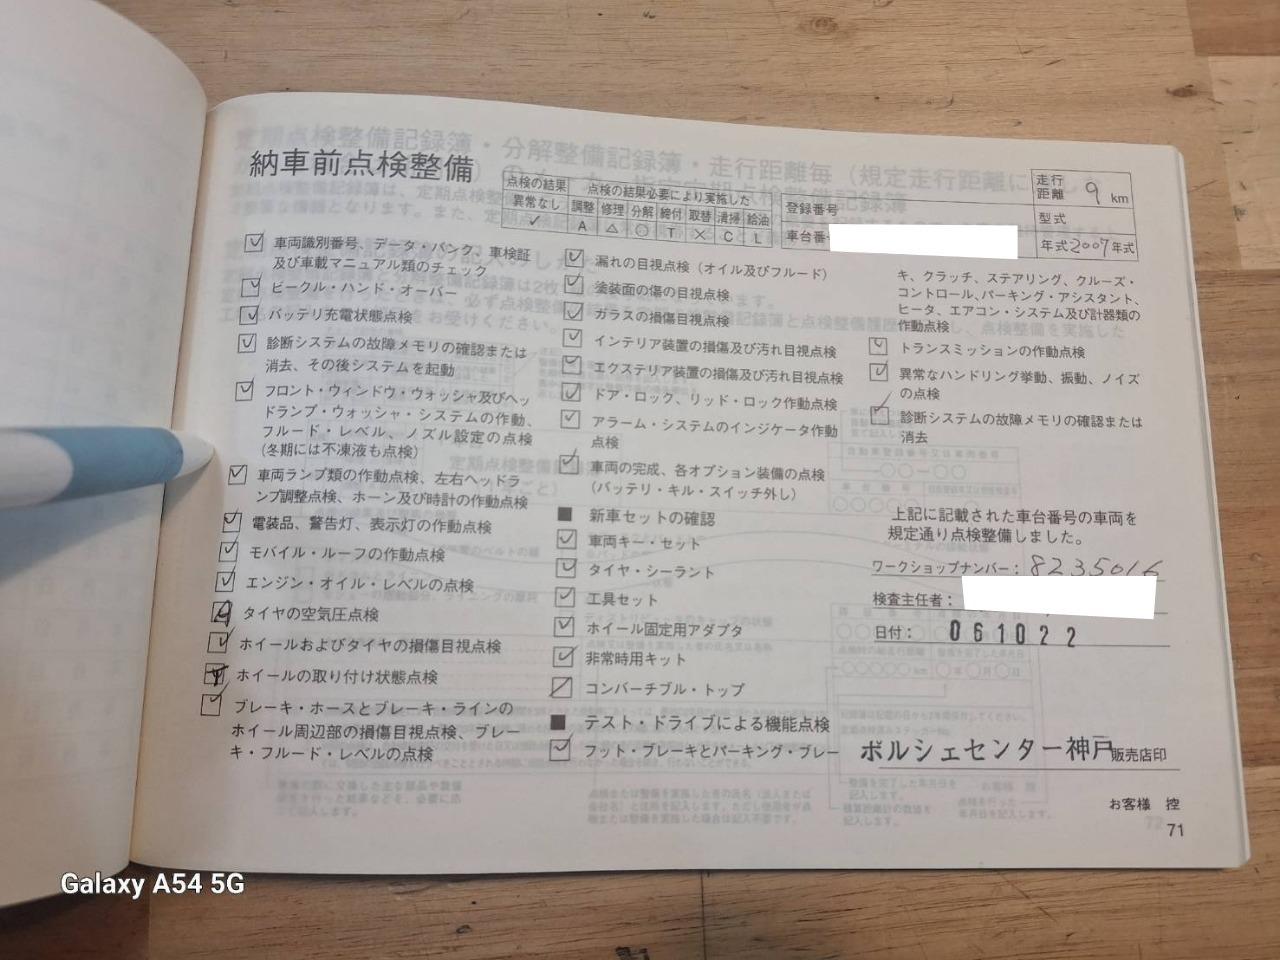 納車前点検整備
点検の結果 点検の結果必要により実施した
異常なし 調整 修理 分解 締付 取替 清掃 給油
✓ A △ ○ T × C L
登録番号
車台番
走行距離 9 km
型式
年式 2007 年式
車両識別番号、データ・バンク、車検証
及び車載マニュアル類のチェック
ビークル・ハンド・オーバー
バッテリ充電状態点検
診断システムの故障メモリの確認または
消去、その後システムを起動
フロント・ウィンドウ・ウォッシャ及びヘッ
ドランプ・ウォッシャ・システムの作動、
フルード・レベル、ノズル設定の点検
(冬期には不凍液も点検)
車両ランプ類の作動点検、左右ヘッドラ
ンプ調整点検、ホーン及び時計の作動点検
電装品、警告灯、表示灯の作動点検
モバイル・ルーフの作動点検
エンジン・オイル・レベルの点検
タイヤの空気圧点検
ホイールおよびタイヤの損傷目視点検
ホイールの取り付け状態点検
ブレーキ・ホースとブレーキ・ラインの
ホイール周辺部の損傷目視点検、ブレー
キ・フルード・レベルの点検
漏れの目視点検(オイル及びフルード)
塗装面の傷の目視点検
ガラスの損傷目視点検
インテリア装置の損傷及び汚れ目視点検
エクステリア装置の損傷及び汚れ目視点検
ドア・ロック、リッド・ロック作動点検
アラーム・システムのインジケータ作動
点検
車両の完成、各オプション装備の点検
(バッテリ・キル・スイッチ外し)
■ 新車セットの確認
車両キー・セット
タイヤ・シーラント
工具セット
ホイール固定用アダプタ
非常時用キット
コンバーチブル・トップ
■ テスト・ドライブによる機能点検
フット・ブレーキとパーキング・ブレー
キ、クラッチ、ステアリング、クルーズ・
コントロール、パーキング・アシスタント、
ヒータ、エアコン・システム及び計器類の
作動点検
トランスミッションの作動点検
異常なハンドリング挙動、振動、ノイズ
の点検
診断システムの故障メモリの確認または
消去
上記に記載された車台番号の車両を
規定通り点検整備しました。
ワークショップナンバー: 8235016
検査主任者:
日付: 061022
ポルシェセンター神戸 販売店印
お客様 控
71
Galaxy A54 5G